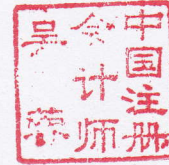 中国注册
会计师
吴荣